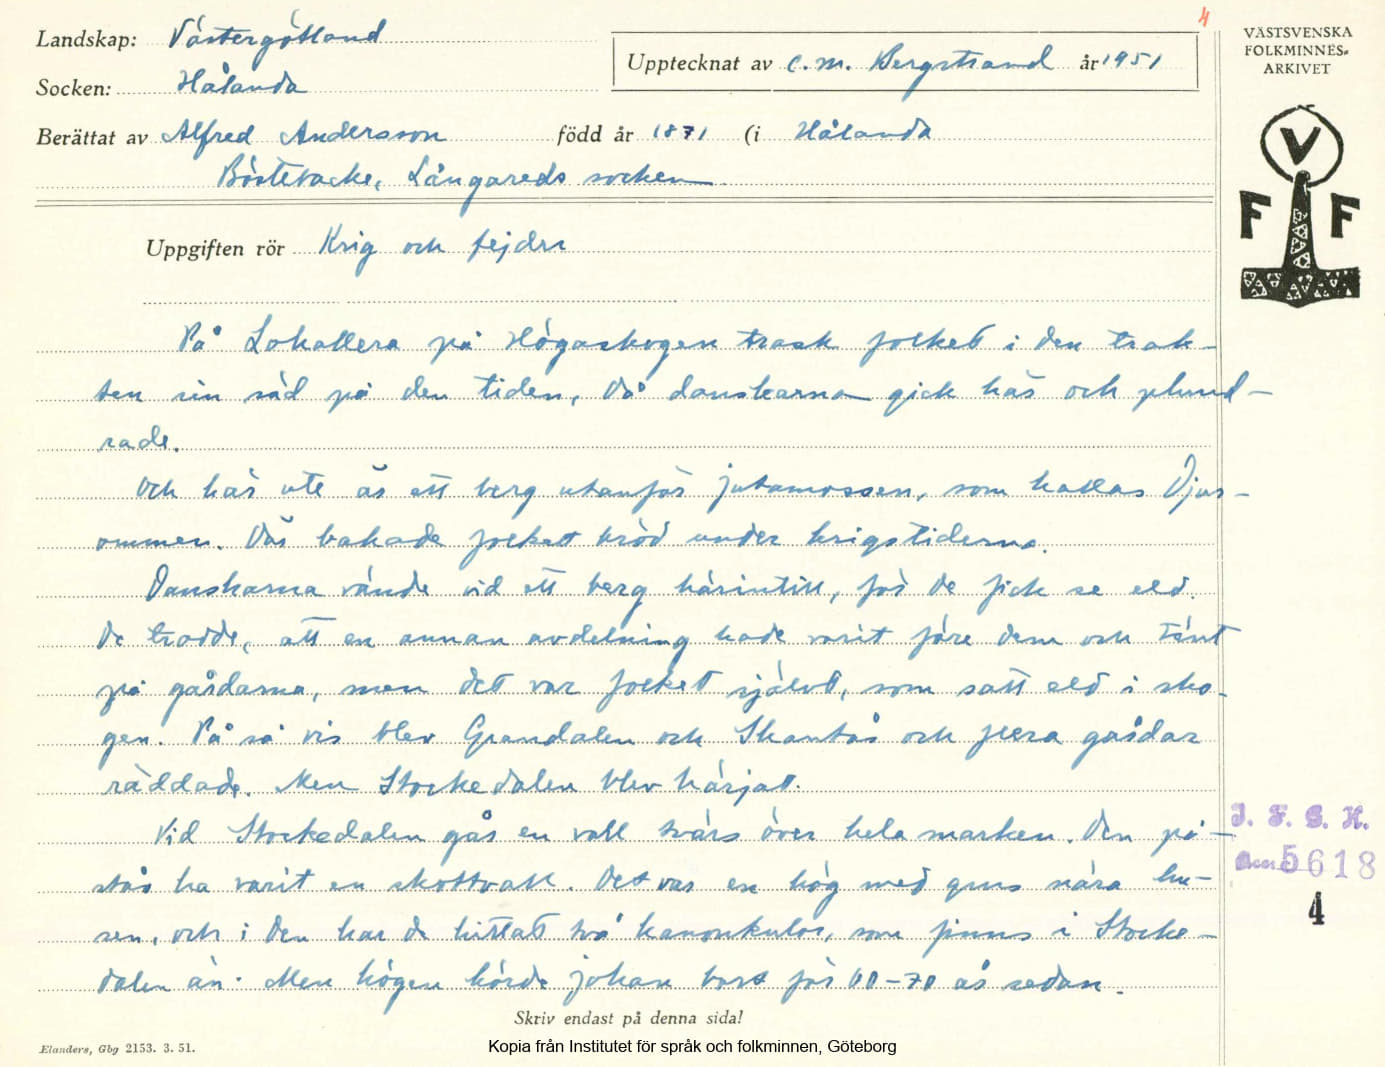 4
Landskap: Västergötland
Socken: Hålanda
Upptecknat av C. M. Bergstrand år 1951
Berättat av Alfred Andersson född år 1871 (i Hålanda
Börtebacke, Långareds socken
VÄSTSVENSKA
FOLKMINNES-
ARKIVET
V
F F
Uppgiften rör Krig och fejder
På Lokallera på Högaskogen trask folket i den trak-
ten sin säd på den tiden, då danskarna gick här och plund-
rade.
Och här ute är ett berg utanför jutamossen, som kallas Djur-
ommen. Där bakade folket bröd under krigstiderna.
Danskarna vände vid ett berg härintill, för de fick se eld.
De trodde, att en annan avdelning hade varit före dem och tänt
på gårdarna, men det var folket självt, som satt eld i sko-
gen. På så vis blev Grandalen och Skantås och flera gårdar
räddade. Men Stockedalen blev härjat.
Vid Stockedalen går en vall tvärs över hela marken. Den på-
stås ha varit en skottvall. Det var en hög med grus nära hu-
sen, och i den har de hittat två kanonkulor, som finns i Stocke-
dalen än. Men högen körde johan bort för 60-70 år sedan.
I. F. G. H.
5618
4
Skriv endast på denna sida!
Elanders, Gbg 2153. 3. 51.
Kopia från Institutet för språk och folkminnen, Göteborg